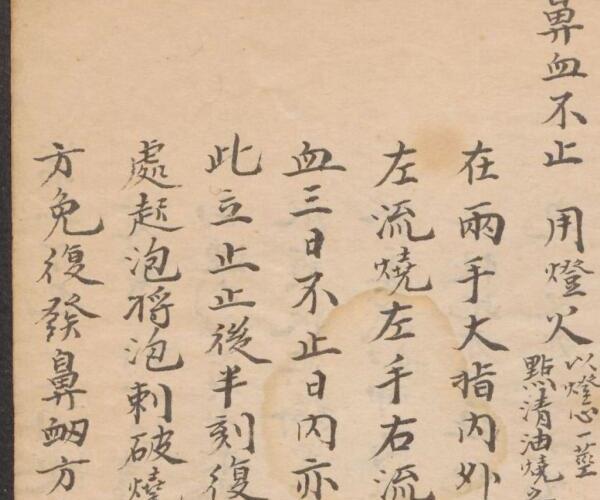 鼻血不止 用燈火
以燈心一莖
點清油燒
在兩手大指內外
左流燒左手右流
血三日不止日內亦
此立止止後半刻復
處起泡將泡刺破燒
方免復發鼻衂方